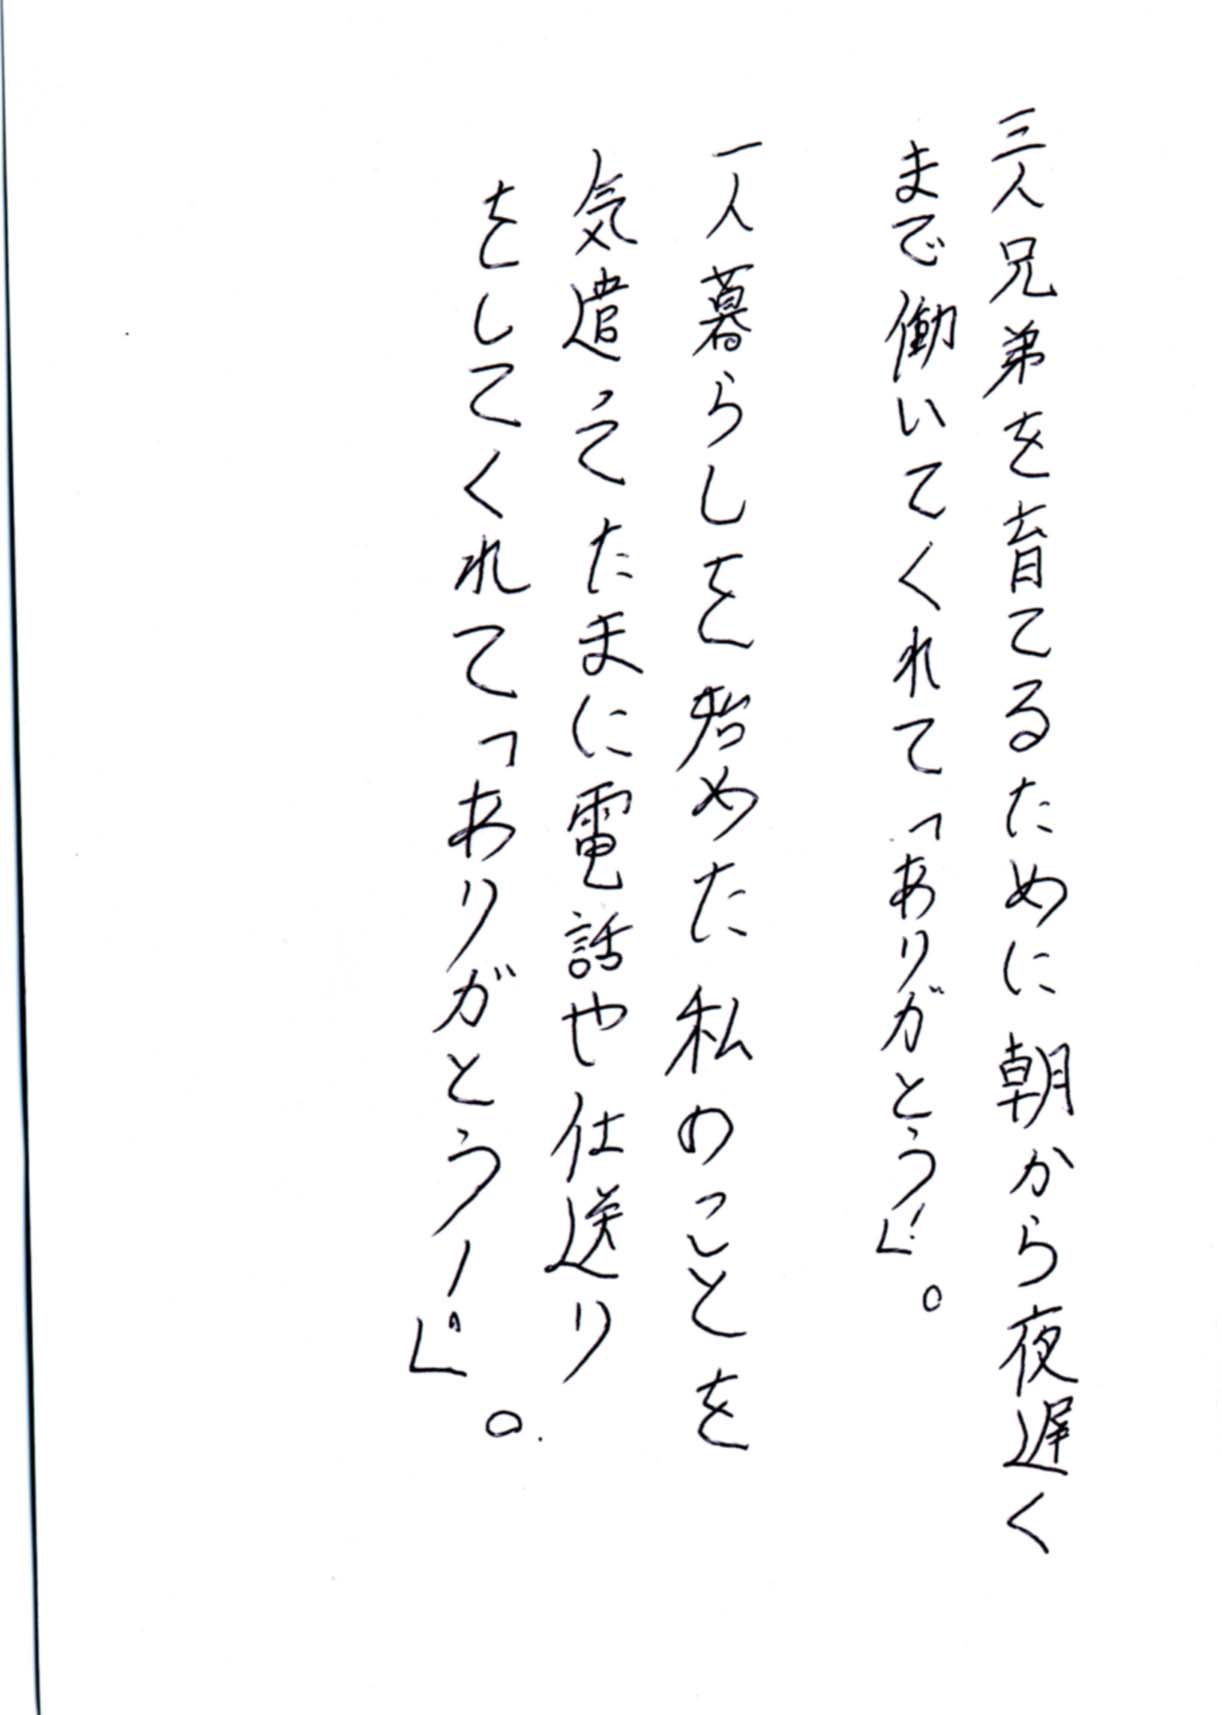 三人兄弟を育てるために朝から夜遅く
まで働いてくれて「ありがとう!」。
一人暮らしを始めた私のことを
気遣ってたまに電話や仕送り
をしてくれて「ありがとう!」。